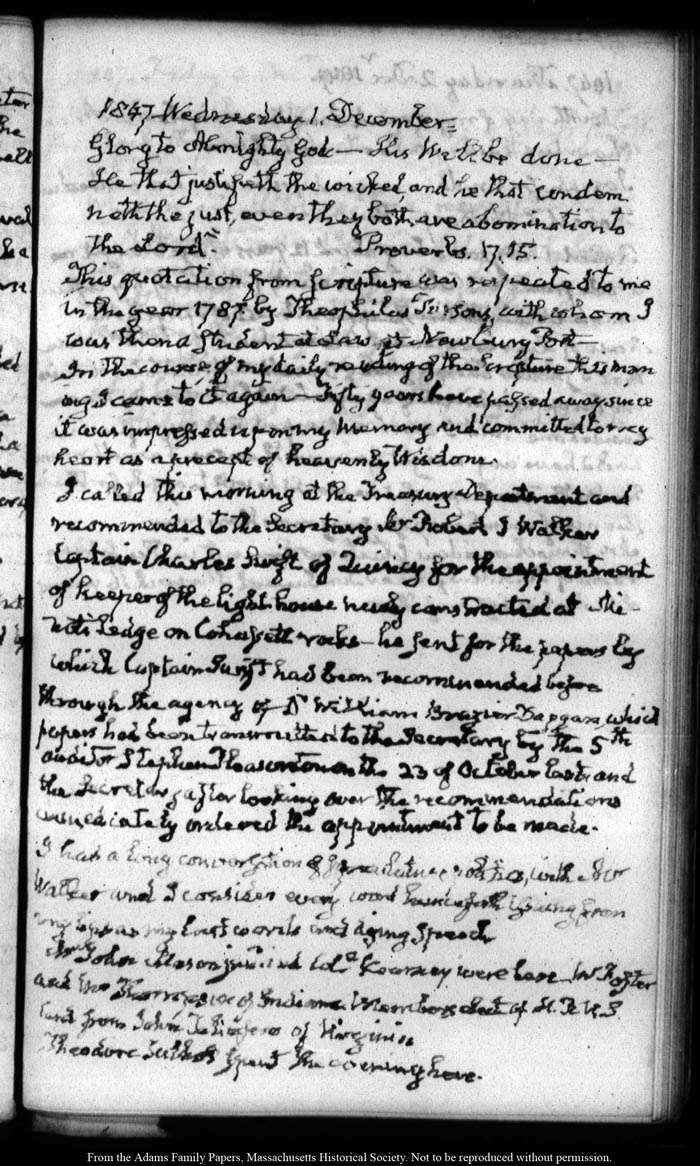 1847. Wednesday 1. December.
Glory to Almighty God — His Will be done —
He that justifieth the wicked, and he that condem
neth the just, even they both are abomination to
the Lord. Proverbs. 17, 15.
This quotation from Scripture was repeated to me
in the year 1787 by Theophilus Parsons, with whom I
was then a Student at Law at Newbury Port —
In the course of my daily reading of the Scripture this morn
ing I came to it again — Fifty years have passed away since
it was impressed upon my Memory and committed to my
heart as a precept of heavenly Wisdom.
I called this morning at the Treasury Department and
recommended to the Secretary Mr Robert J Walker
Captain Charles Swift of Quincy for the appointment
of keeper of the light-house newly constructed at Mi-
nots ledge on Cohassett rocks — he sent for the papers by
which Captain Swift had been recommended before
through the agency of Dr William Brazier Duggan, which
papers had been transmitted to the Secretary by the 5th
auditor Stephen Pleasonton on the 23 of October last and
the Secretary after looking over the recommendations
immediately ordered the appointment to be made.
I had a long conversation of politics, with Mr
Walker and I consider every word henceforth issuing from
my lips as my last words and dying Speech
John Mason junr. and Kearney were here W Foster
and Mr Thompson of Indiana Members elect of H. R. U. S.
and from John Taliafero of Virginia
Theodore spent the evening here.
From the Adams Family Papers, Massachusetts Historical Society. Not to be reproduced without permission.